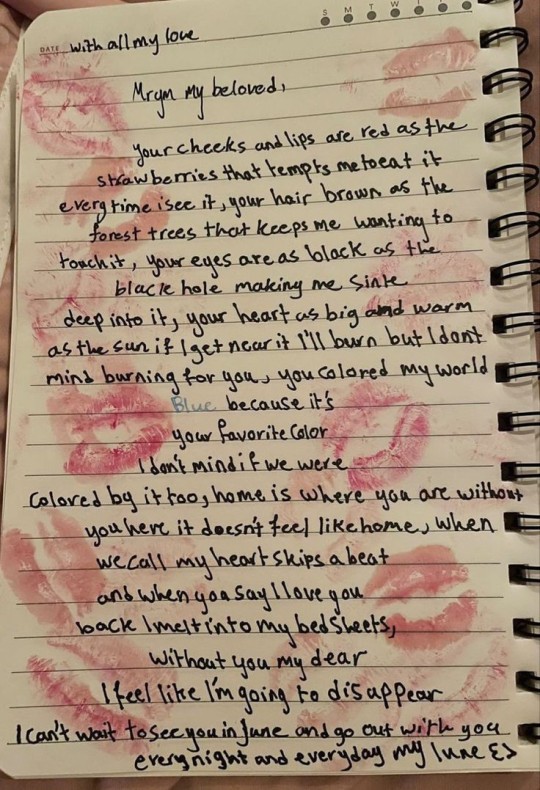 S M T W T F S
DATE with all my love
Mrym my beloved,
your cheeks and lips are red as the
strawberries that tempts me to eat it
every time i see it, your hair brown as the
forest trees that keeps me wanting to
touch it, your eyes are as black as the
black hole making me sink
deep into it, your heart as big and warm
as the sun if I get near it I'll burn but I dont
mind burning for you, you colored my world
Blue because it's
your favorite color
I don't mind if we were
colored by it too, home is where you are without
you here it doesn't feel like home, when
we call my heart skips a beat
and when you say I love you
back I melt into my bed sheets,
without you my dear
I feel like I'm going to disappear
I can't wait to see you in June and go out with you
every night and everyday my lune ε>